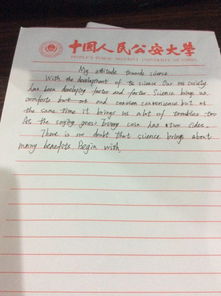 中国人民公安大学
PEOPLE'S PUBLIC SECURITY UNIVERSITY OF CHINA
My attitude towards science
With the development of the science Our society
has been developing faster and faster Science brings us
comforts but and common convenience but at
the same time it brings us a lot of troubles too
As the saying goes: Every coin has two sides.
There is no doubt that science brings about
many benefits. Begin with